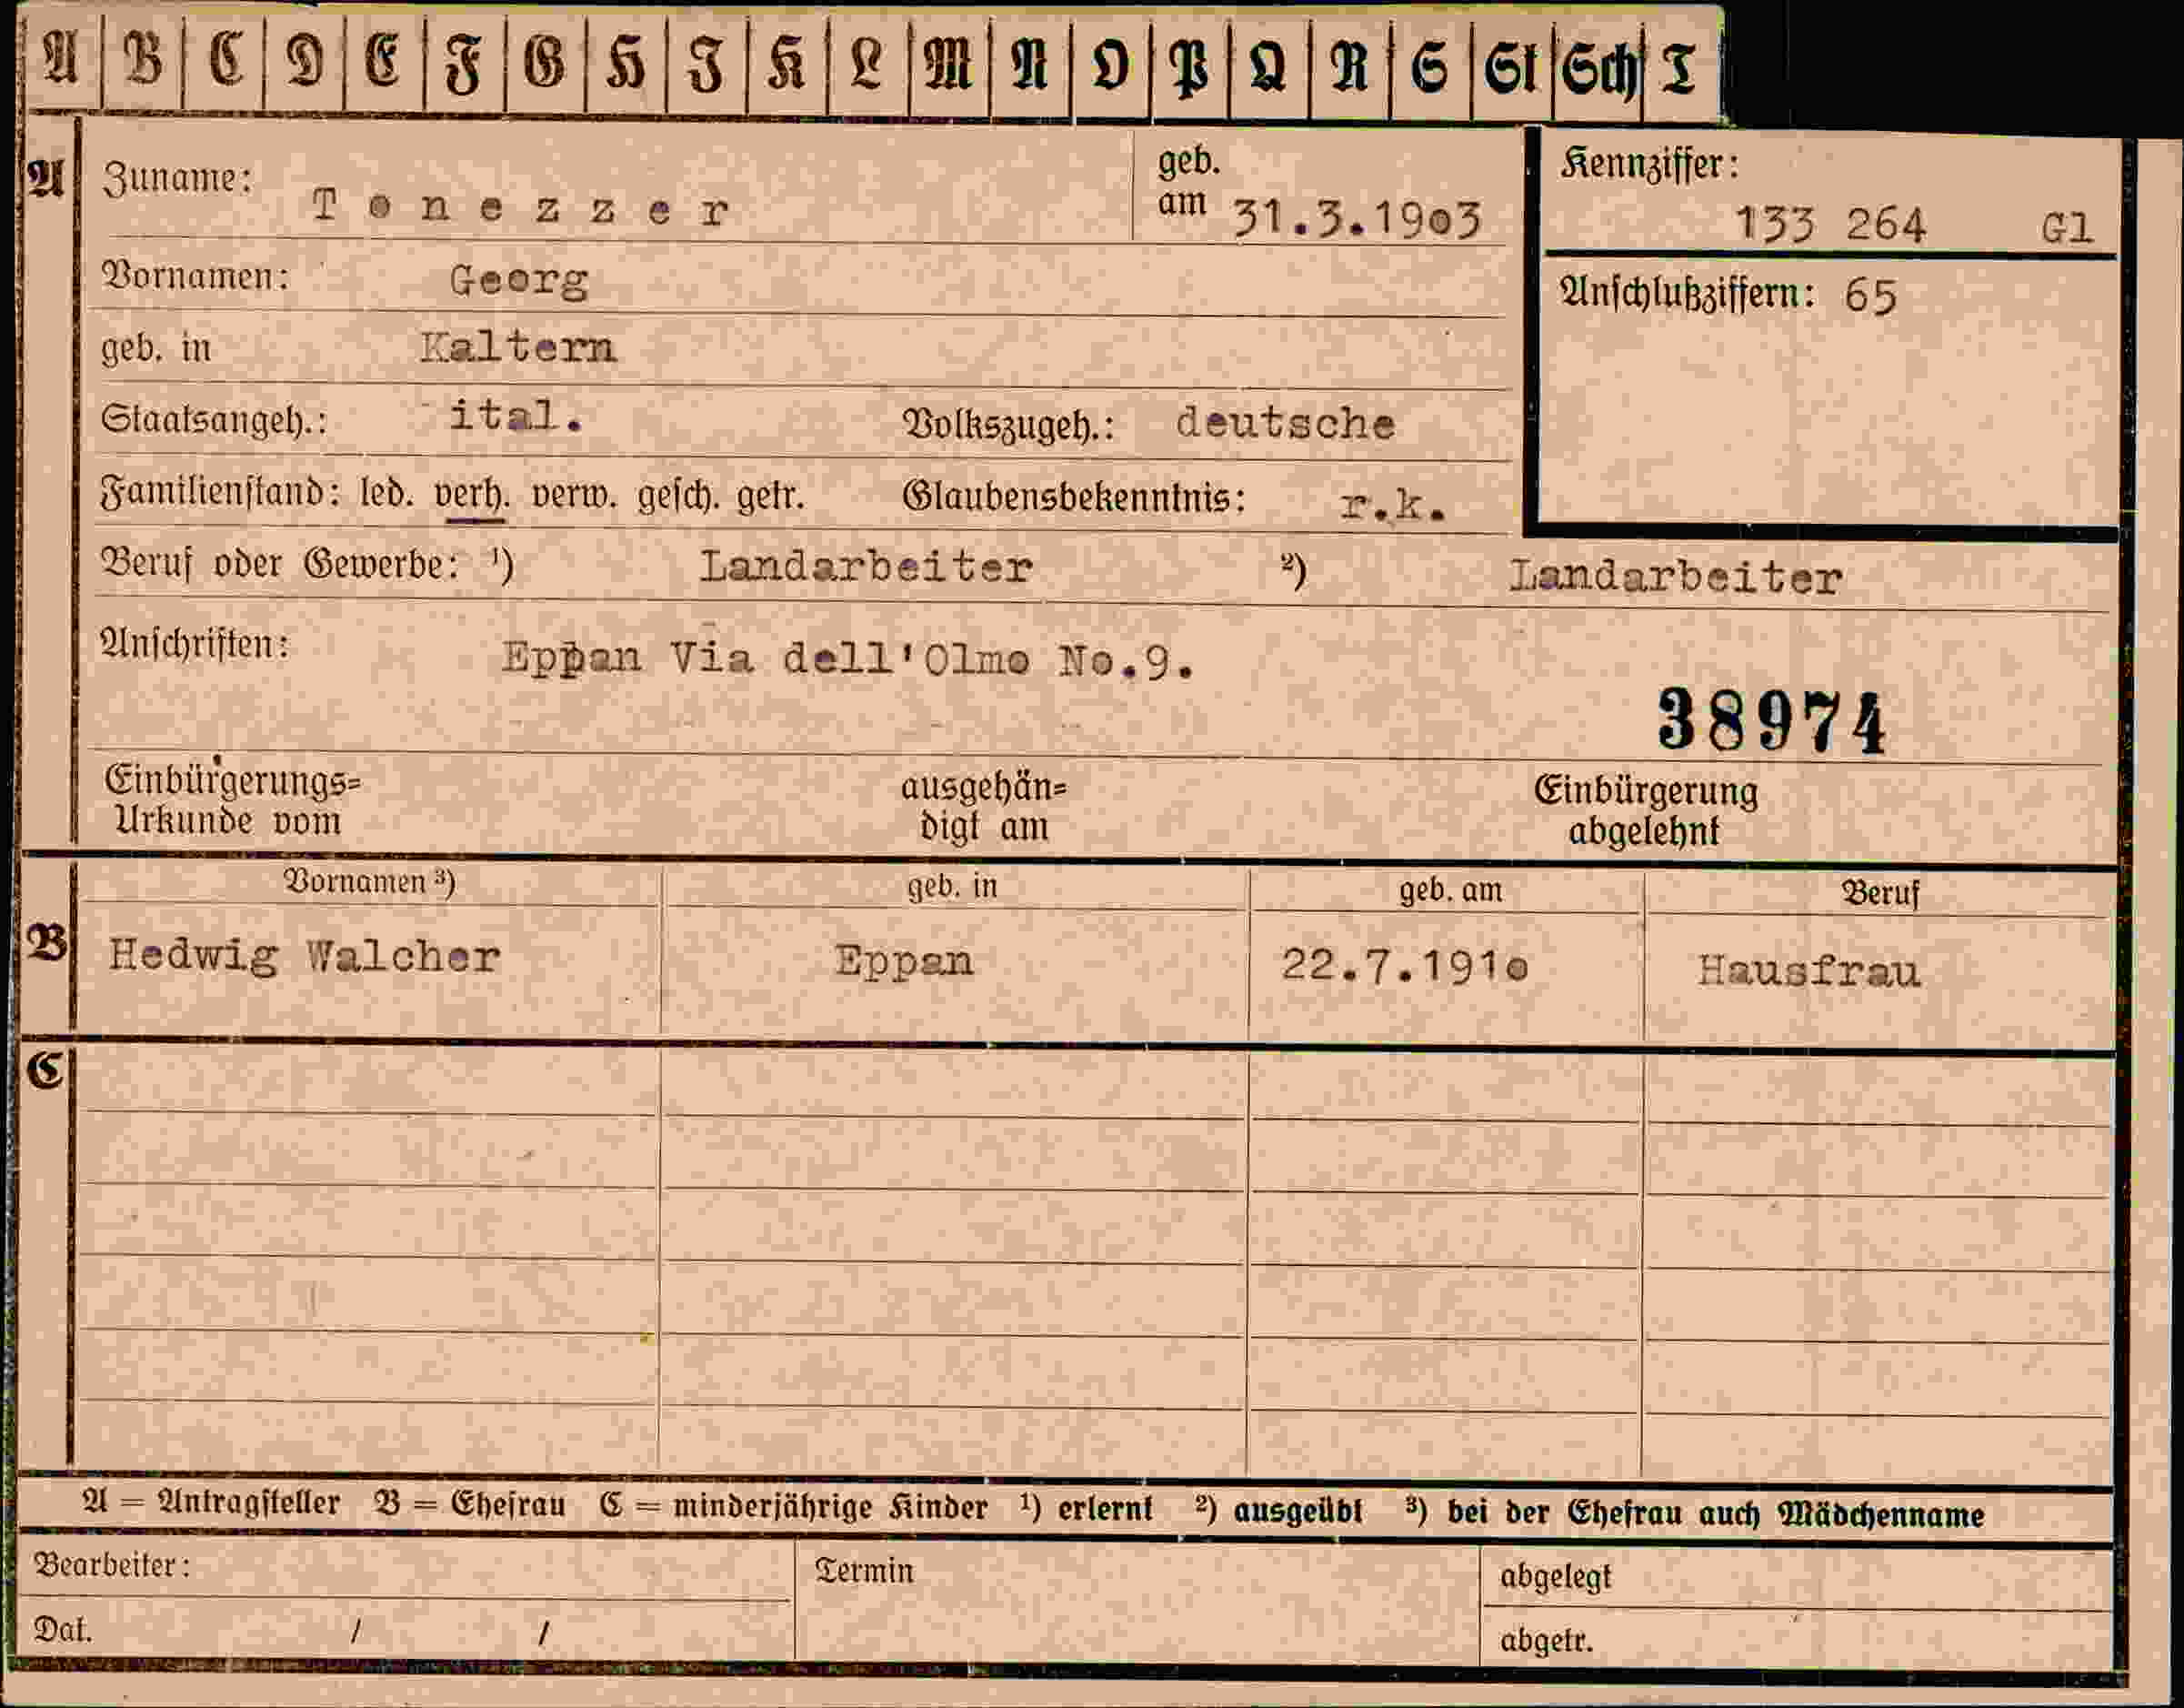 A B C D E F G H I K L M N O P Q R S St Sch T
A Zuname: Tonezzer geb. am 31.3.1903 Kennziffer: 133 264 Gl
Vornamen: Georg Anschlußziffern: 65
geb. in Kaltern
Staatsangeh.: ital. Volkszugeh.: deutsche
Familienstand: led. verh. verw. gesch. getr. Glaubensbekenntnis: r.k.
Beruf oder Gewerbe: ¹) Landarbeiter ²) Landarbeiter
Anschriften: Eppan Via dell'Olmo No.9.
38974
Einbürgerungs= ausgehän= Einbürgerung
Urkunde vom digt am abgelehnt
Vornamen ³) geb. in geb. am Beruf
B Hedwig Walcher Eppan 22.7.1910 Hausfrau
C
A = Antragsteller B = Ehefrau C = minderjährige Kinder ¹) erlernt ²) ausgeübt ³) bei der Ehefrau auch Mädchenname
Bearbeiter: Termin abgelegt
Dat. / / abgetr.